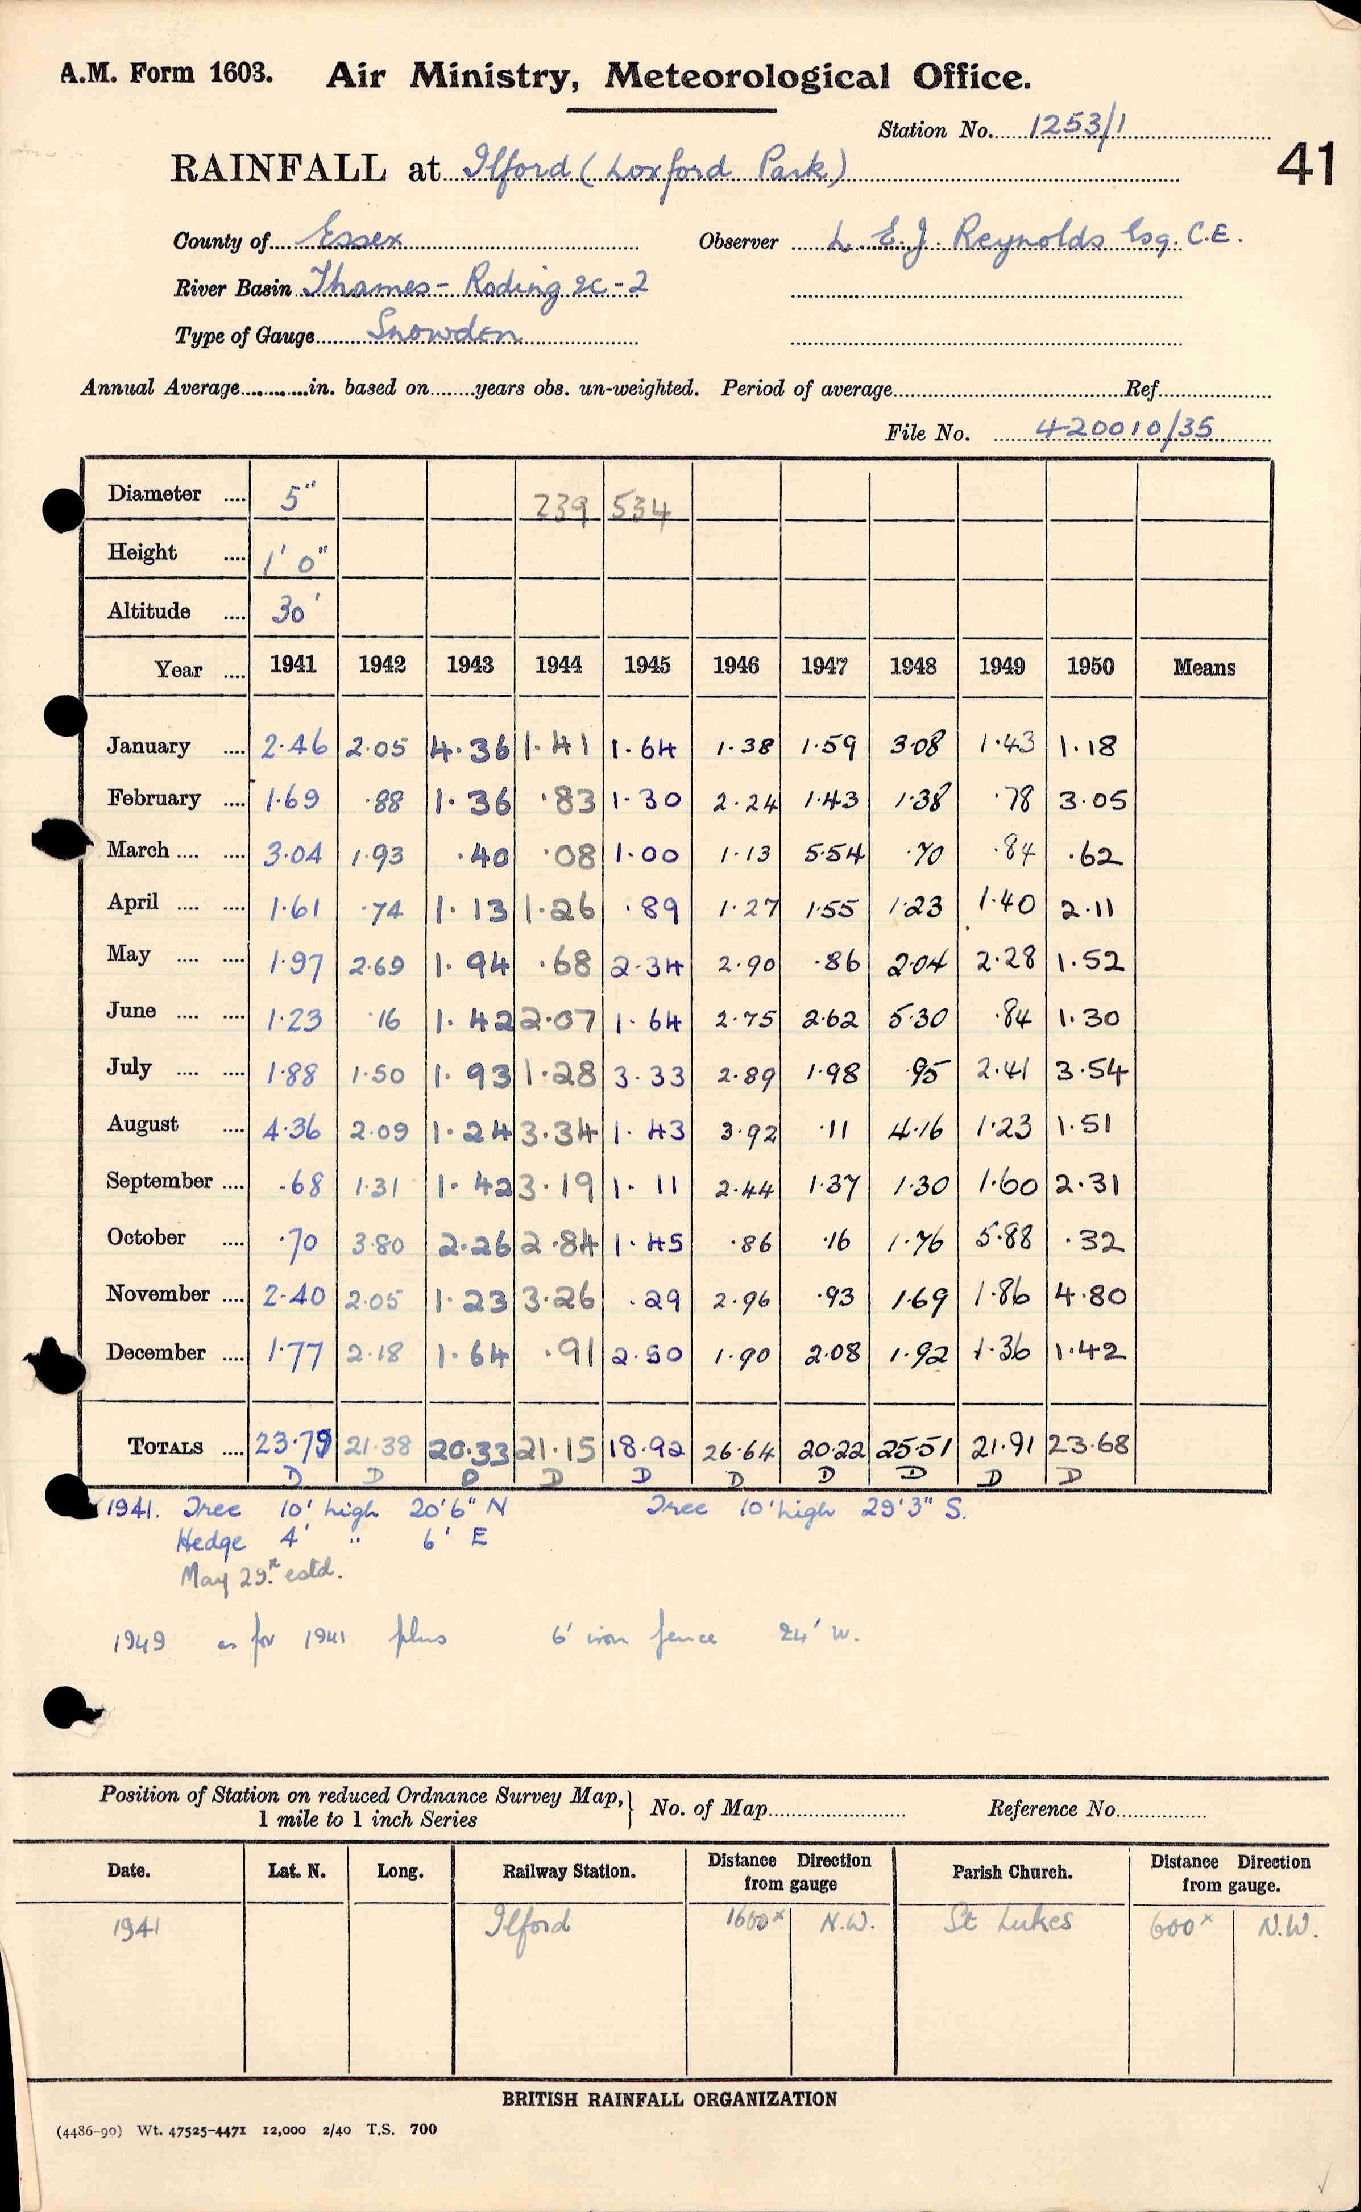 A.M. Form 1603. Air Ministry, Meteorological Office.
Station No. 1253/1
41
RAINFALL at Ilford (Loxford Park)
County of Essex Observer L. E.J. Reynolds Esq. C.E.
River Basin Thames - Roding 2C-2
Type of Gauge Snowdon
Annual Average in. based on years obs. un-weighted. Period of average Ref
File No. 420010/35
Diameter 5" 239 534
Height 1' 0"
Altitude 30'
Year 1941 1942 1943 1944 1945 1946 1947 1948 1949 1950 Means
January 2.46 2.05 4.36 1.41 1.64 1.38 1.59 3.08 1.43 1.18
February 1.69 .88 1.36 .83 1.30 2.24 1.43 1.38 .78 3.05
March 3.04 1.93 .40 .08 1.00 1.13 5.54 .70 .84 .62
April 1.61 .74 1.13 1.26 .89 1.27 1.55 1.23 1.40 2.11
May 1.97 2.69 1.94 .68 2.34 2.90 .86 2.04 2.28 1.52
June 1.23 .16 1.42 2.07 1.64 2.75 2.62 5.30 .84 1.30
July 1.88 1.50 1.93 1.28 3.33 2.89 1.98 .95 2.41 3.54
August 4.36 2.09 1.24 3.34 1.43 3.92 .11 4.16 1.23 1.51
September .68 1.31 1.42 3.19 1.11 2.44 1.37 1.30 1.60 2.31
October .70 3.80 2.26 2.84 1.45 .86 .16 1.76 5.88 .32
November 2.40 2.05 1.23 3.26 .29 2.96 .93 1.69 1.86 4.80
December 1.77 2.18 1.64 .91 2.50 1.90 2.08 1.92 1.36 1.42
TOTALS 23.79 21.38 20.33 21.15 18.92 26.64 20.22 25.51 21.91 23.68
D D D D D D D D D D
1941. Tree 10' high 20'6" N Tree 10' high 29'3" S.
Hedge 4' " 6' E
May 29th estd.
1949 as for 1941 plus 6' iron fence 24' W.
Position of Station on reduced Ordnance Survey Map, 1 mile to 1 inch Series } No. of Map Reference No.
Date. Lat. N. Long. Railway Station. Distance Direction from gauge Parish Church. Distance Direction from gauge.
1941 Ilford 1600x N.W. St Lukes 600x N.W.
BRITISH RAINFALL ORGANIZATION
(4486-90) Wt. 47525-4471 12,000 2/40 T.S. 700